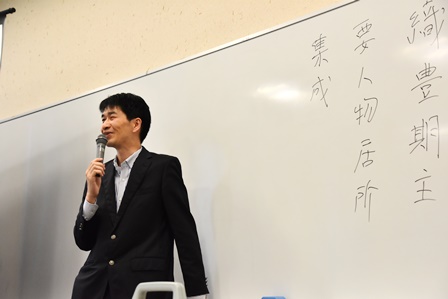 織豊期主
要人物居所
集成